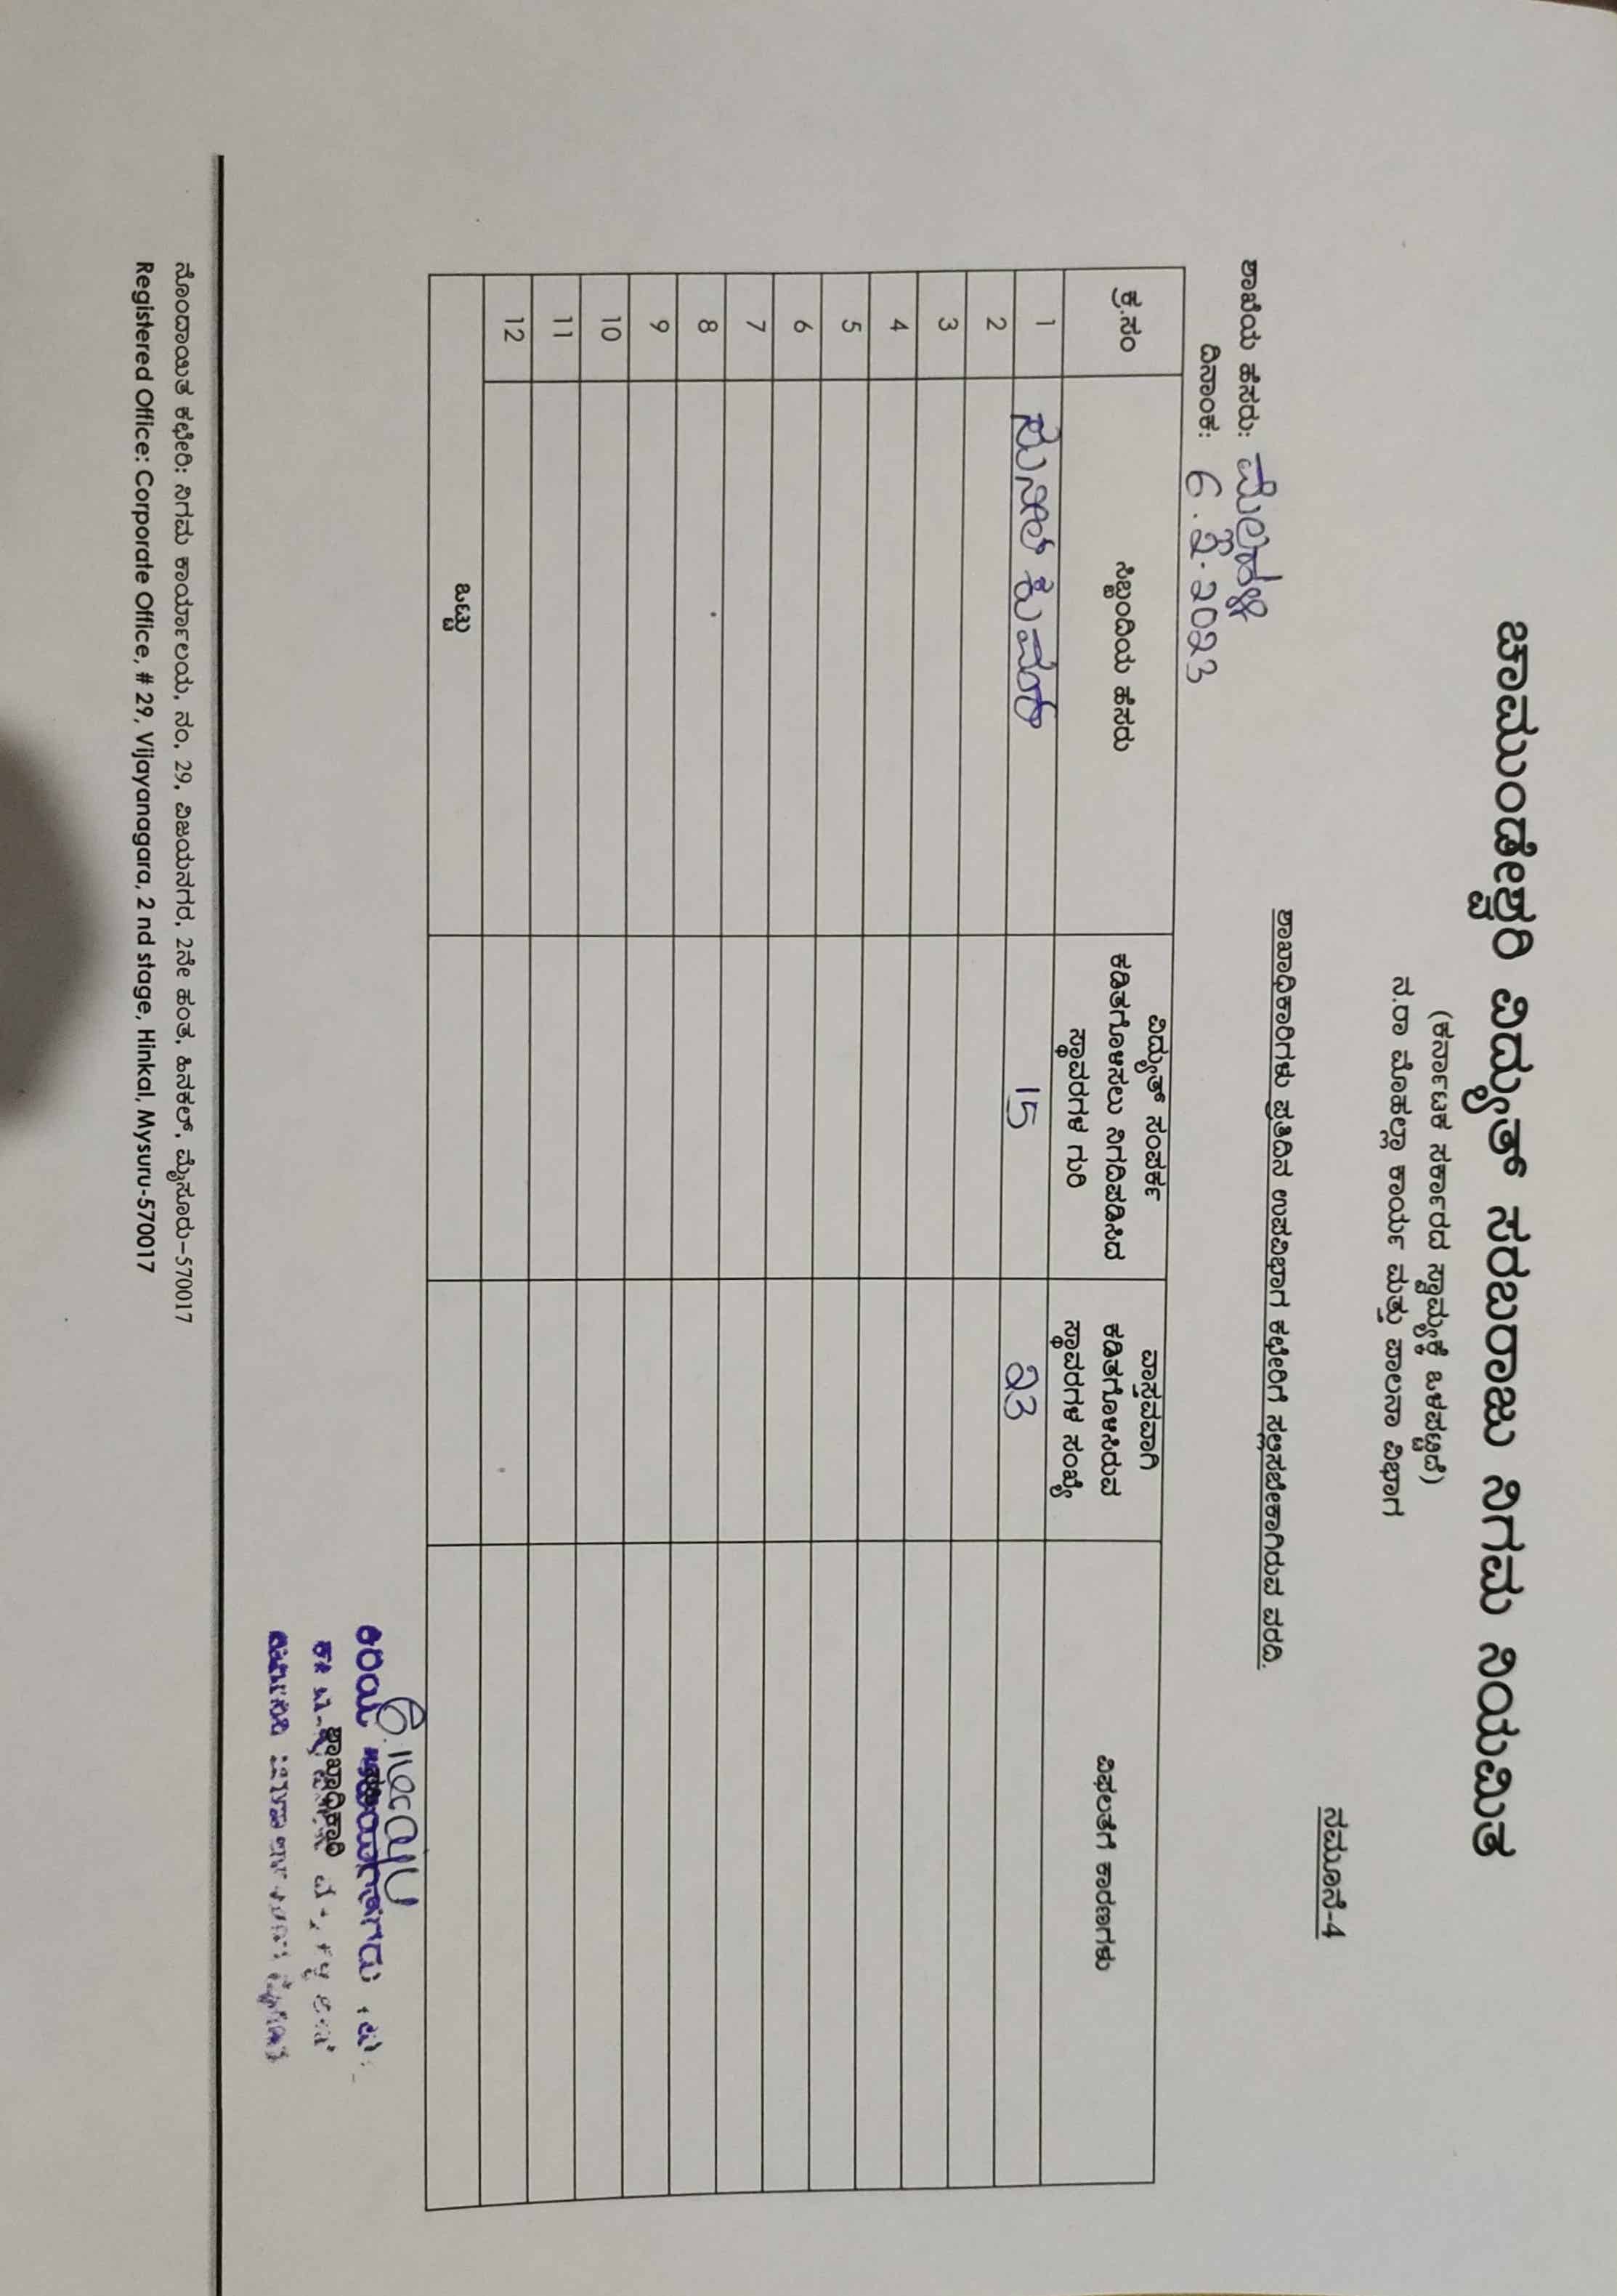 ಚಾಮುಂಡೇಶ್ವರಿ ವಿದ್ಯುತ್ ಸರಬರಾಜು ನಿಗಮ ನಿಯಮಿತ
(ಕರ್ನಾಟಕ ಸರ್ಕಾರದ ಸ್ವಾಮ್ಯಕ್ಕೆ ಒಳಪಟ್ಟಿದೆ)
ನ.ರಾ ಮೊಹಲ್ಲಾ ಕಾರ್ಯ ಮತ್ತು ಪಾಲನಾ ವಿಭಾಗ
ನಮೂನೆ-4
ಶಾಖಾಧಿಕಾರಿಗಳು ಪ್ರತಿದಿನ ಉಪವಿಭಾಗ ಕಛೇರಿಗೆ ಸಲ್ಲಿಸಬೇಕಾಗಿರುವ ವರದಿ.
ಶಾಖೆಯ ಹೆಸರು:
ದಿನಾಂಕ: 6.2.2023
ಕ್ರ.ಸಂ
ಸಿಬ್ಬಂದಿಯ ಹೆಸರು
ವಿದ್ಯುತ್ ಸಂಪರ್ಕ
ಕಡಿತಗೊಳಿಸಲು ನಿಗದಿಪಡಿಸಿದ
ಸ್ಥಾವರಗಳ ಗುರಿ
ವಾಸ್ತವವಾಗಿ
ಕಡಿತಗೊಳಿಸಿರುವ
ಸ್ಥಾವರಗಳ ಸಂಖ್ಯೆ
ವಿಫಲತೆಗೆ ಕಾರಣಗಳು
1 ಸುನೀಲ್ ಕುಮಾರ್ 15 23
2
3
4
5
6
7
8
9
10
11
12
ಒಟ್ಟು
ಕಿರಿಯ
ಶಾಖಾಧಿಕಾರಿ
ನೊಂದಾಯಿತ ಕಛೇರಿ: ನಿಗಮ ಕಾರ್ಯಾಲಯ, ನಂ. 29, ವಿಜಯನಗರ, 2ನೇ ಹಂತ, ಹಿನಕಲ್, ಮೈಸೂರು-570017
Registered Office: Corporate Office, # 29, Vijayanagara, 2 nd stage, Hinkal, Mysuru-570017